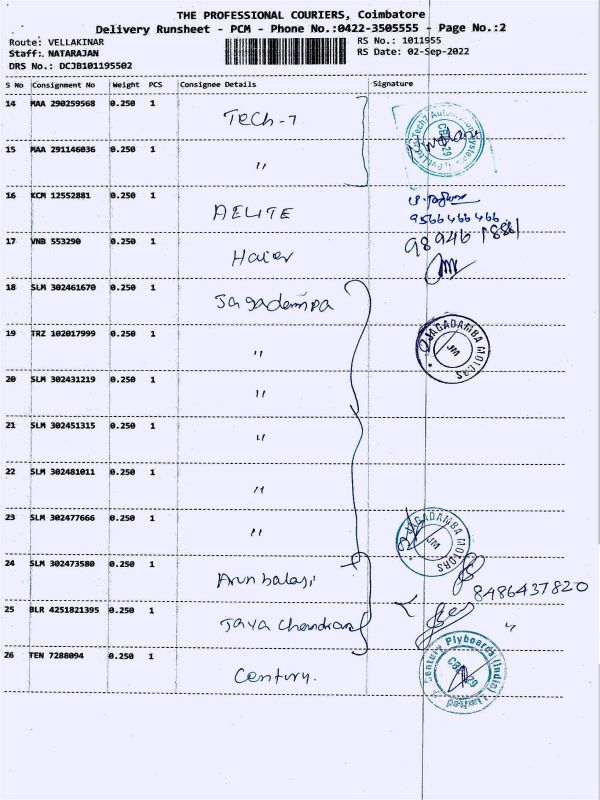 THE PROFESSIONAL COURIERS, Coimbatore
Delivery Runsheet - PCM - Phone No.:0422-3505555 - Page No.:2
Route: VELLAKINAR RS No.: 1011955
Staff: NATARAJAN RS Date: 02-Sep-2022
DRS No.: DCJB101195502
S No Consignment No Weight PCS Consignee Details Signature
14 MAA 290259568 0.250 1 Tech-7
15 MAA 291146036 0.250 1 "
16 KCM 12552881 0.250 1 AELITE 9566466466
17 VNB 553290 0.250 1 Haier 98946 18881
18 SLM 302461670 0.250 1 Jagadempa
19 TRZ 102017999 0.250 1 " JAGADAMBA MOTORS JM
20 SLM 302431219 0.250 1 "
21 SLM 302451315 0.250 1 "
22 SLM 302481011 0.250 1 "
23 SLM 302477666 0.250 1 " JAGADAMBA MOTORS JM
24 SLM 302473580 0.250 1 Arunbalaji 8486437820
25 BLR 4251821395 0.250 1 Jaya Chandran "
26 TEN 7288094 0.250 1 Century. Century Plyboards (India) Limited